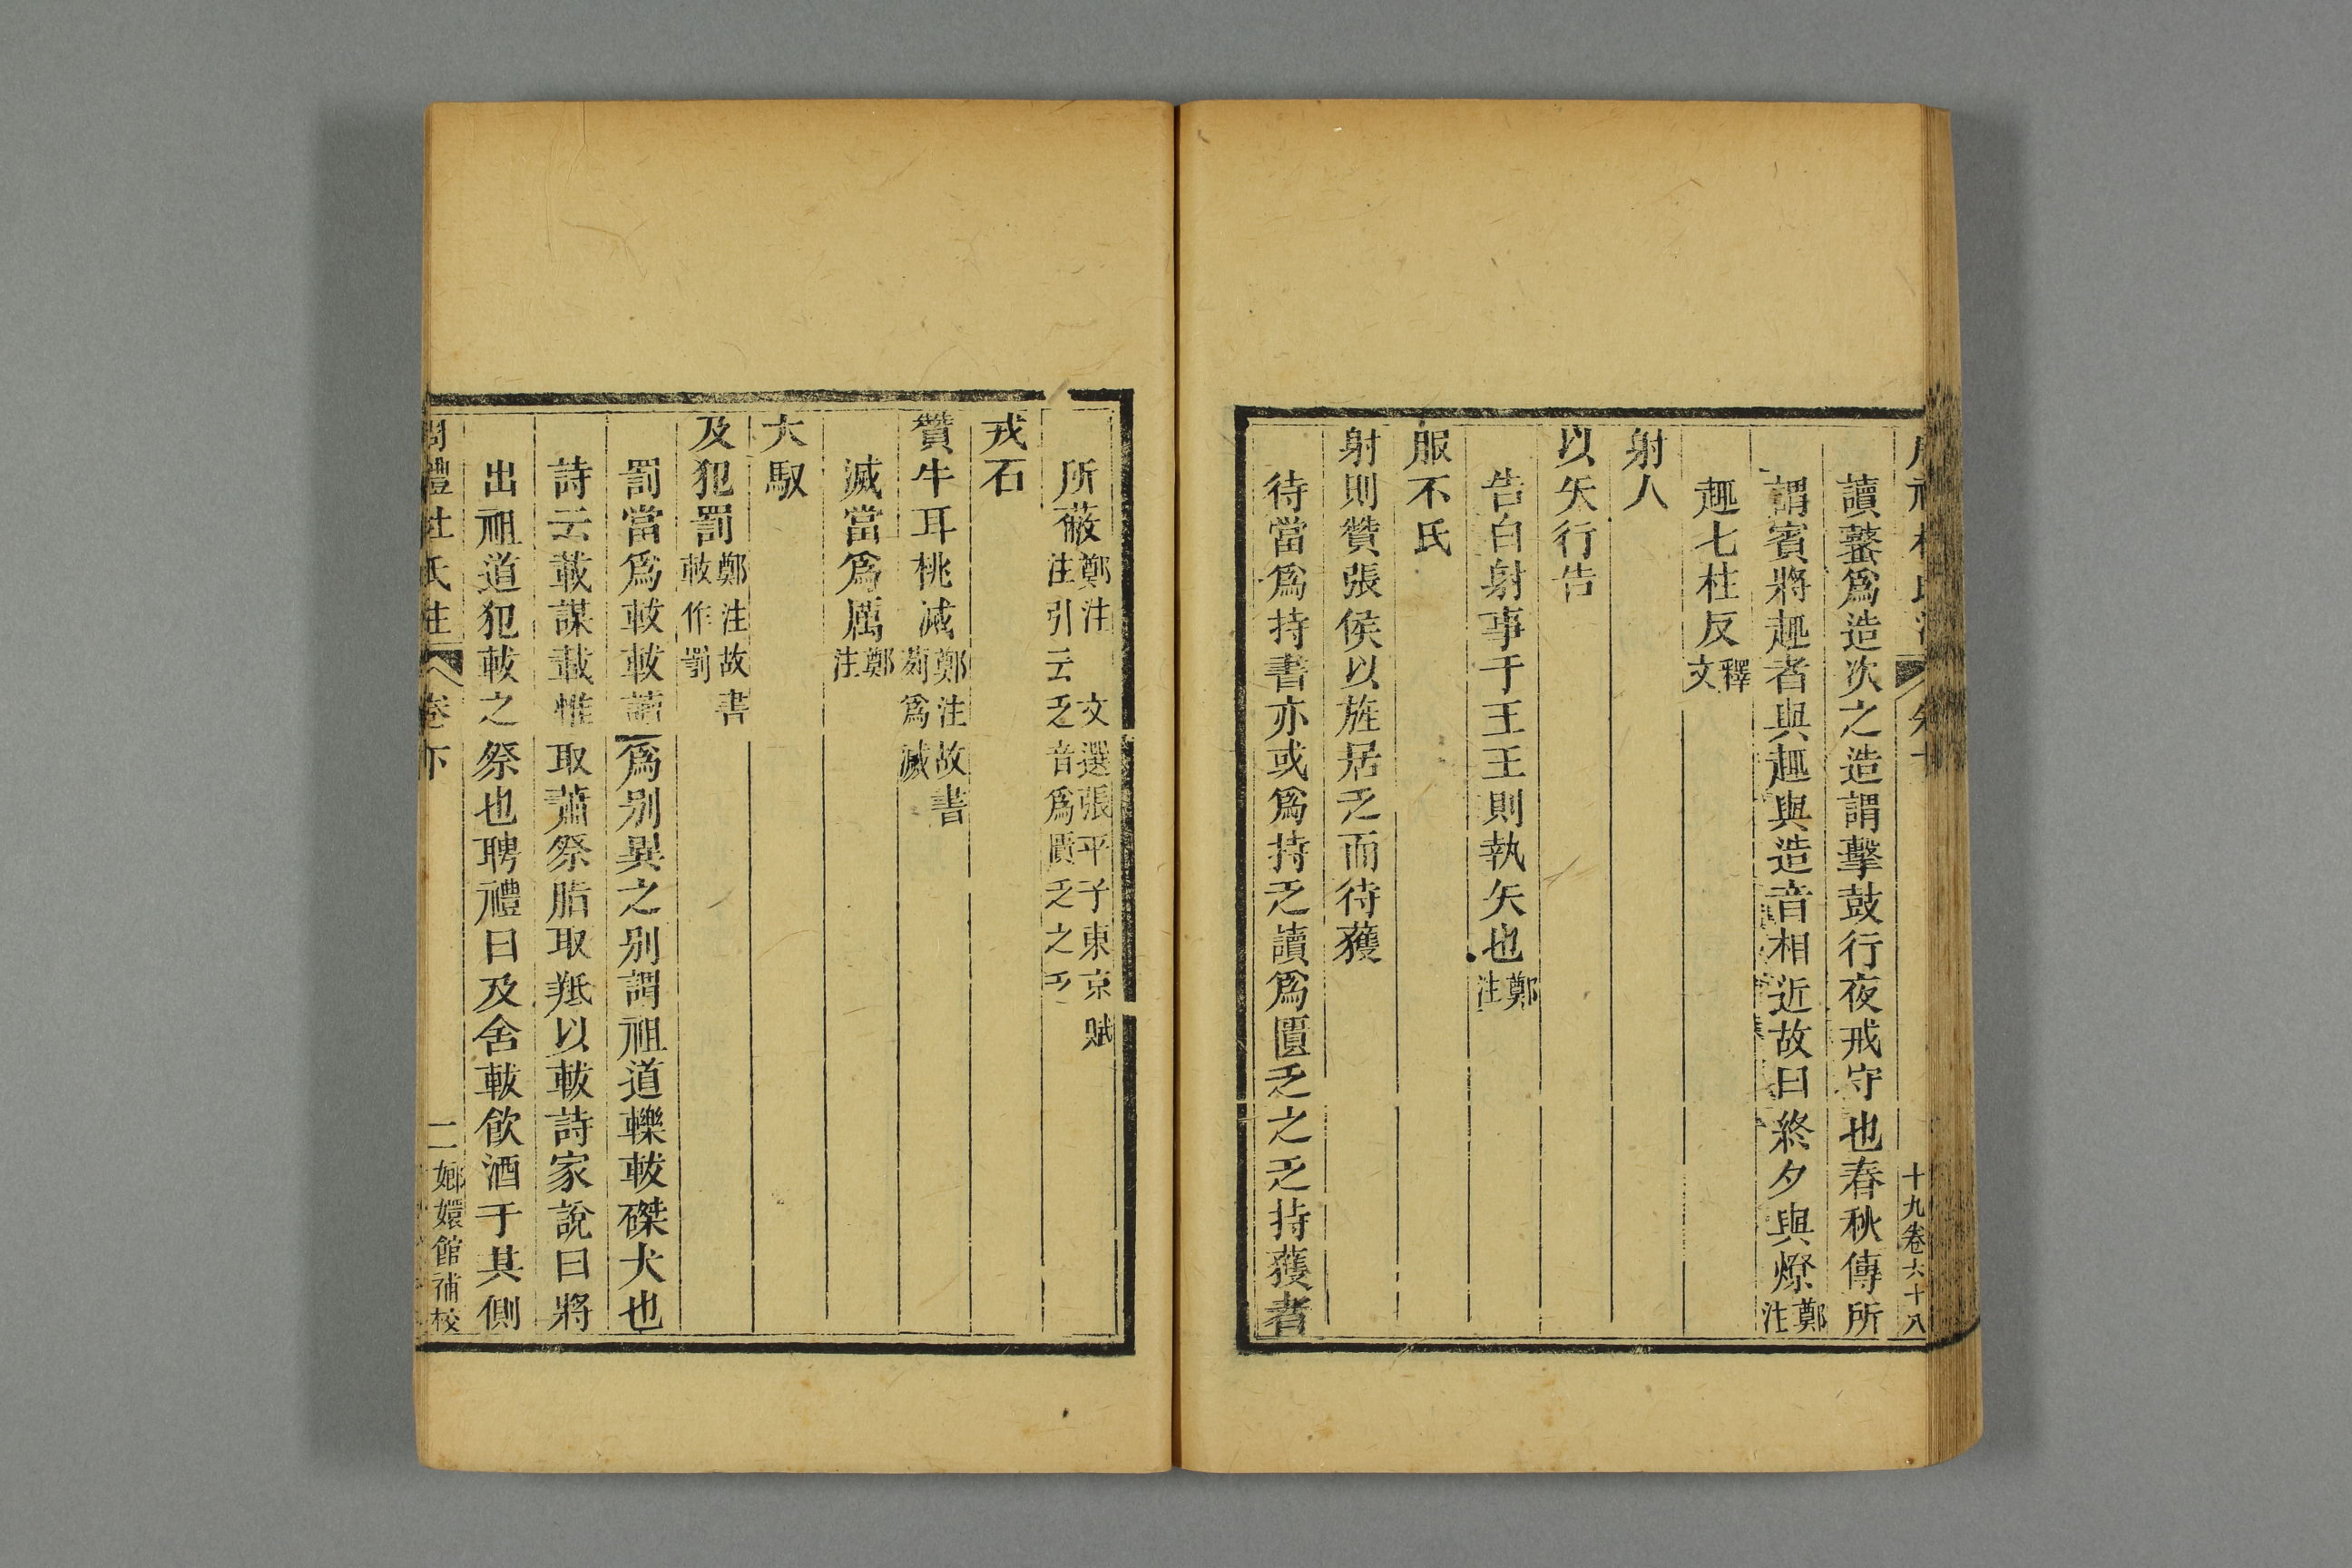 十九卷六十八
讀鼜爲造次之造謂擊鼓行夜戒守也春秋傳所
謂賓將趣者與趣與造音相近故曰終夕與燎鄭注
趣七柱反釋文
射人
以矢行告
告白射事于王王則執矢也鄭注
服不氏
射則贊張侯以旌居乏而待獲
待當爲持書亦或爲持乏讀爲匱乏之乏持獲者
所蔽鄭注 文選張平子東京賦注引云乏音爲匱乏之乏
戎右
贊牛耳桃滅鄭注故書茢爲滅
滅當爲厲鄭注
大馭
及犯罰鄭注故書軷作罰
罰當爲軷軷讀爲別異之別謂祖道轢軷磔犬也
詩云載謀載惟取蕭祭脂取羝以軷詩家說曰將
出祖道犯軷之祭也聘禮曰及舍軷飲酒于其側
周禮杜氏注 卷下 二 嫏嬛館補校